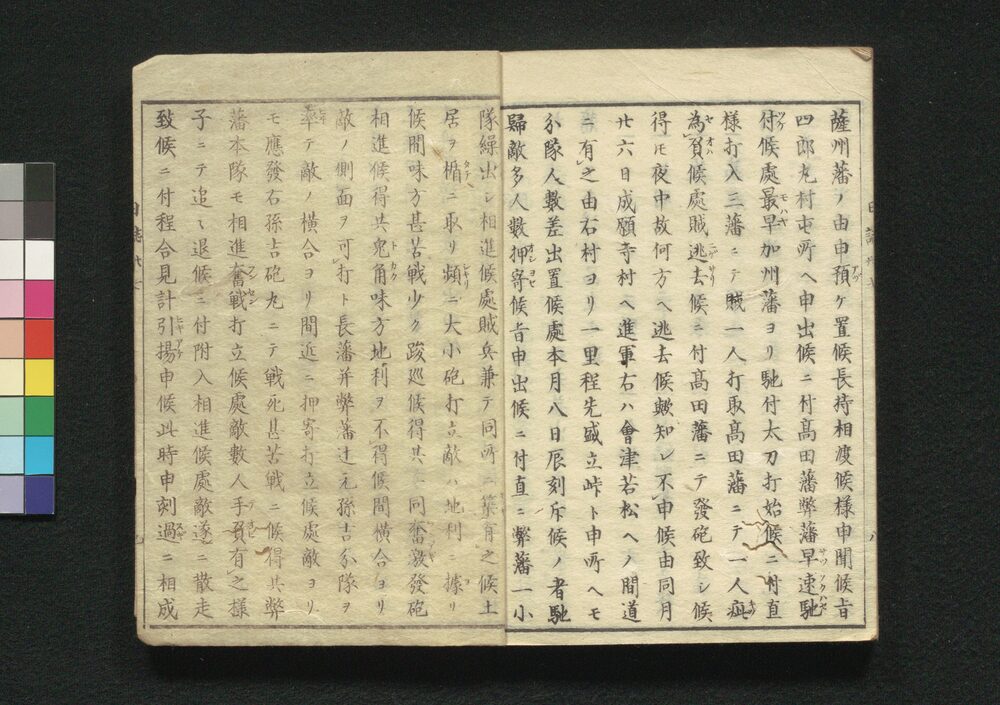 薩州藩ノ由申預ケ置候長持相渡候様申聞候旨
四郎丸村屯所ヘ申出候ニ付髙田藩弊藩早速馳
付候處最早加州藩ヨリ馳付太刀打始候ニ付直
様打入三藩ニテ賊一人打取髙田藩ニテ一人疵
為負候處賊逃去候ニ付髙田藩ニテ發砲致シ候
得𪜈夜中故何方ヘ逃去候歟知レ不申候由同月
廿六日成願寺村ヘ進軍右ハ會津若松ヘノ間道
ニ有之由右村ヨリ一里程先盛立峠ト申所ヘモ
分隊人數差出置候處本月八日辰刻斥候ノ者馳
歸敵多人數押寄候旨申出候ニ付直ニ弊藩一小
隊繰出シ相進候處賊兵兼テ同所ニ築有之候土
居ヲ楯ニ取リ頻ニ大小砲打立敵ハ地利ニ據リ
候間味方甚苦戰少ク踆巡候得共一同奮激發砲
相進候得共兎角味方地利ヲ不得候間横合ヨリ
敵ノ側面ヲ可打ト長藩并弊藩辻元孫吉分隊ヲ
率テ敵ノ横合ヨリ間近ニ押寄打立候處敵ヨリ
モ應發右孫吉砲丸ニテ戰死甚苦戰ニ候得共弊
藩本隊モ相進奮戰打立候處敵數人手負有之様
子ニテ追々退候ニ付附入相進候處敵遂ニ散走
致候ニ付程合見計引揚申候此時申刻過ニ相成